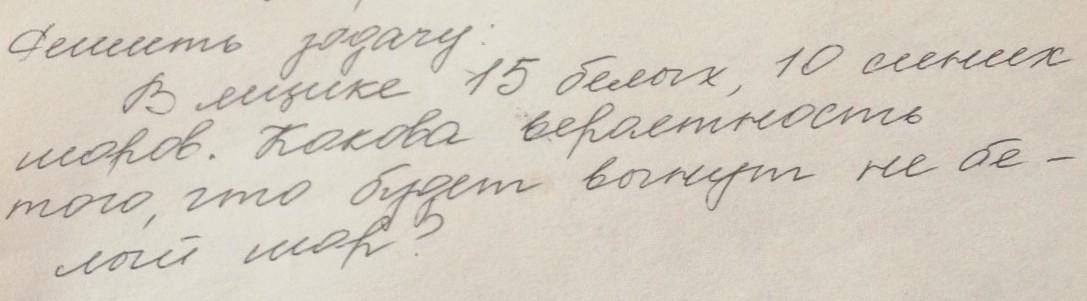 Решить задачу:
В ящике 15 белых, 10 синих
шаров. Какова вероятность
того, что будет вынут не бе-
лый шар?